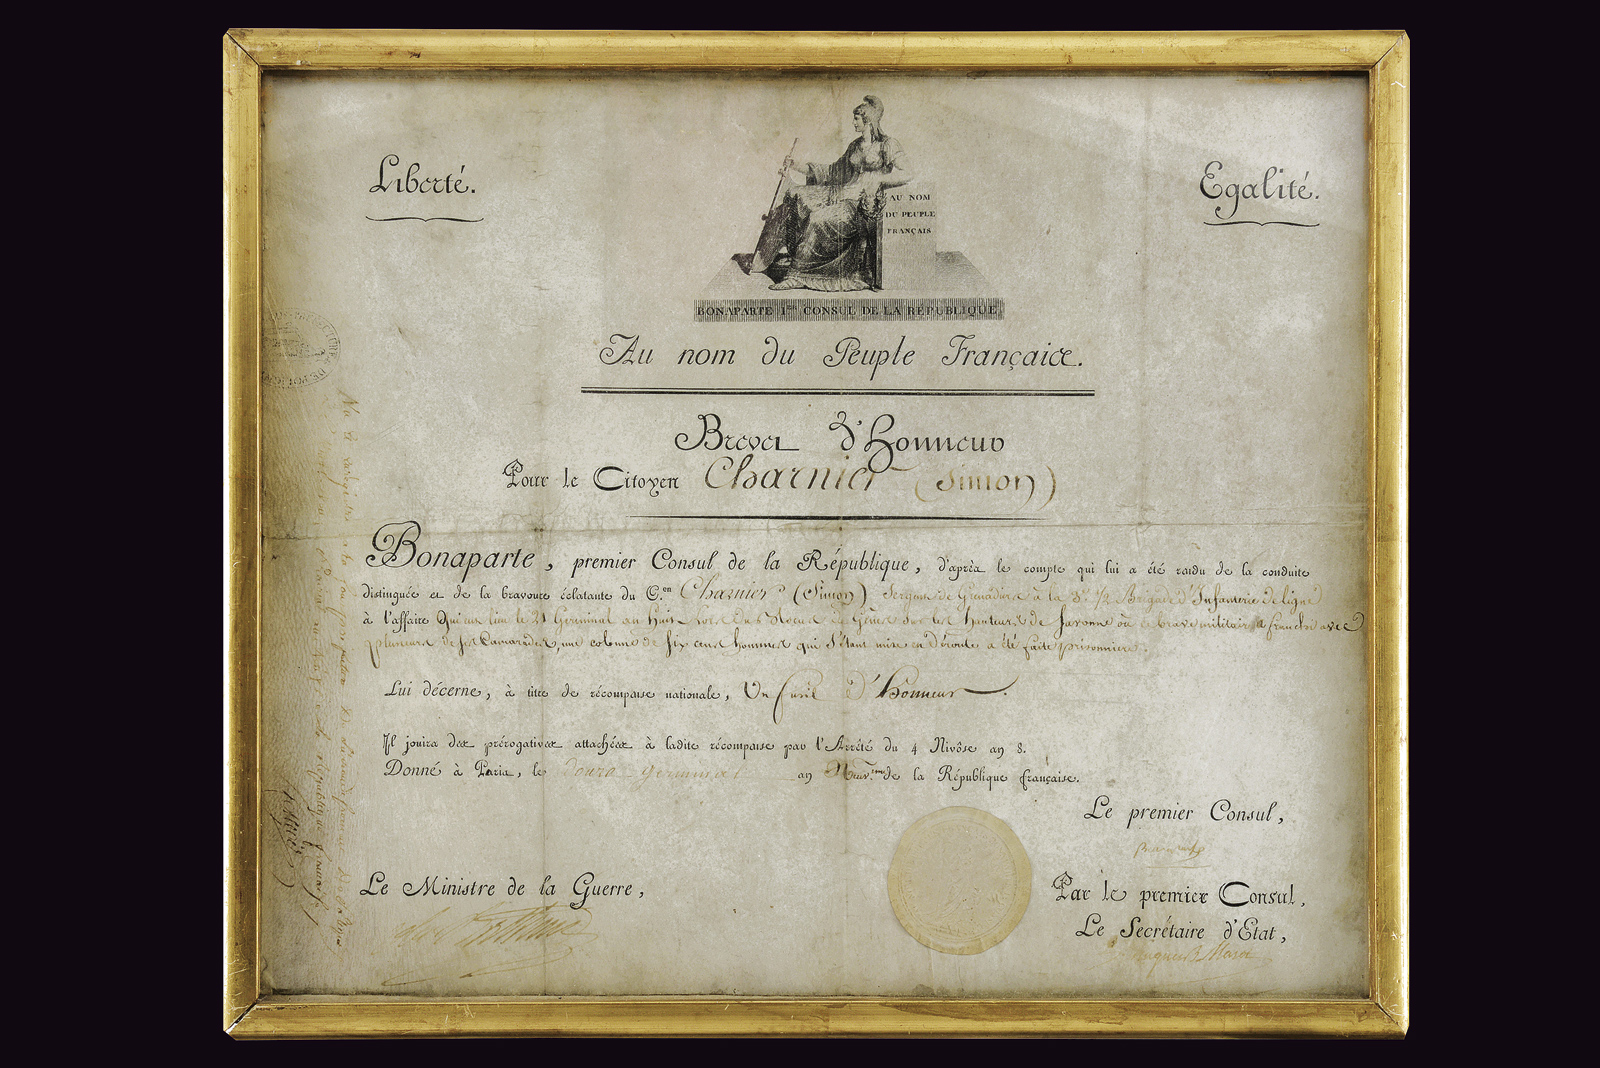 Liberté.
Egalité.
AU NOM
DU PEUPLE
FRANÇAIS
BONAPARTE 1er CONSUL DE LA RÉPUBLIQUE
Au nom du Peuple Français.
Brevet d'Honneur
Pour le Citoyen Charnier (Simon)
Bonaparte, premier Consul de la République, d'après le compte qui lui a été rendu de la conduite
distinguée et de la bravoure éclatante du C.en Charnier (Simon) Sergent de Grenadiers à la 3e 1/2 Brigade d'Infanterie de ligne
à l'affaire Qui eut lieu le 21 Germinal an Huit Lors du Blocus de Gênes Sur les hauteurs de Savonne où ce brave militaire a franchi avec
plusieurs de ses Camarades, une colonne de six cens hommes qui s'étant mise en déroute a été faite prisonnière.
Lui décerne, à titre de récompense nationale, Un fusil d'honneur.
Il jouira des prérogatives attachées à ladite récompense par l'Arrêté du 4 Nivôse an 8.
Donné à Paris, le Douze germinal an Neuv.eme de la République française.
Le premier Consul,
Bonaparte
Le Ministre de la Guerre,
Par le premier Consul,
Le Secrétaire d'État,
Hugues B. Maret